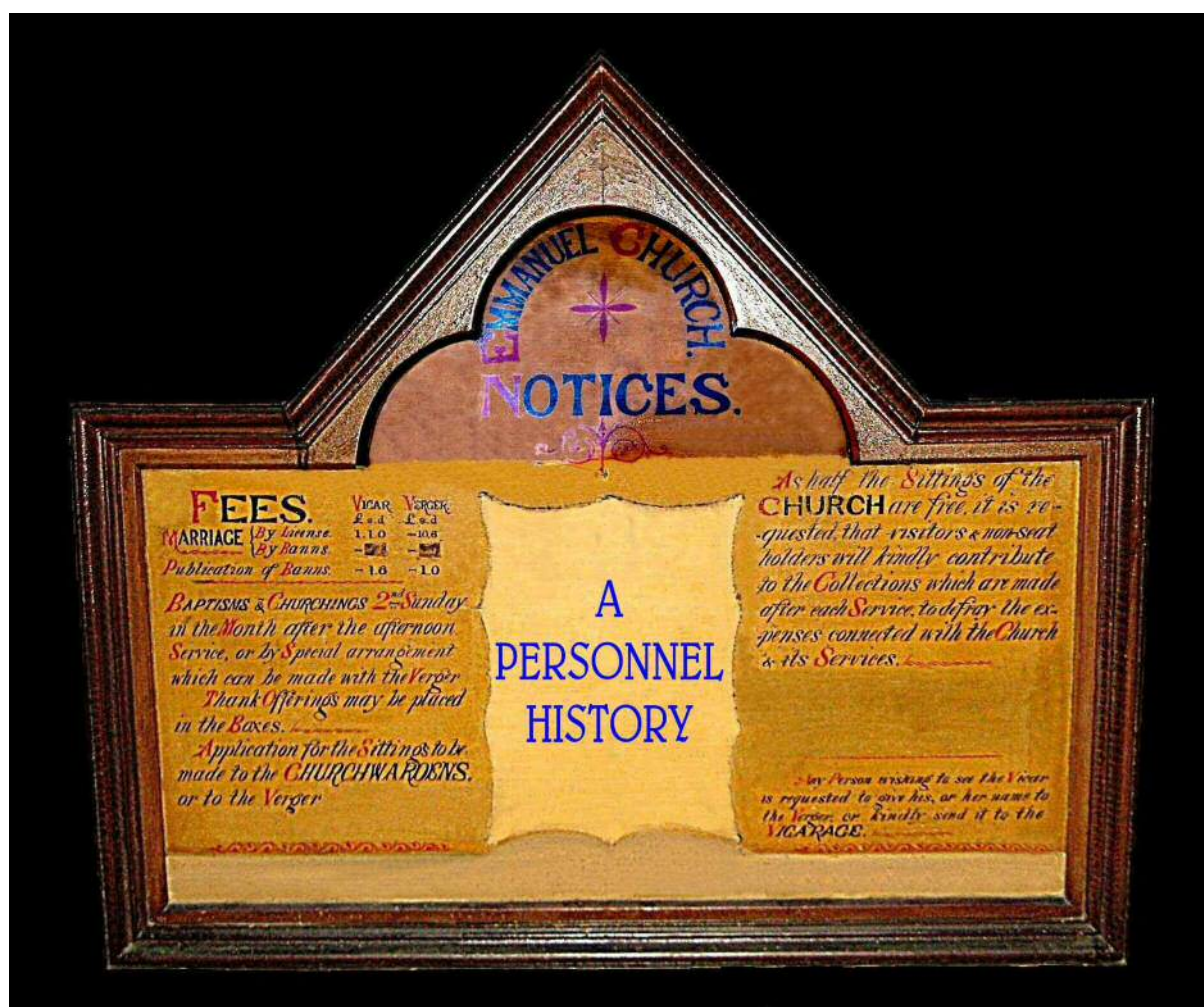 EMMANUEL CHURCH.
NOTICES.
FEES.
VICAR VERGER
£ s.d £ s.d
MARRIAGE { By License. 1.1.0 -10.6
By Banns. - -
Publication of Banns. -1.6 -1.0
BAPTISMS & CHURCHINGS 2nd Sunday
in the Month after the afternoon
Service, or by Special arrangement
which can be made with the Verger
Thank Offerings may be placed
in the Boxes.
Application for the Sittings to be
made to the CHURCHWARDENS,
or to the Verger
A
PERSONNEL
HISTORY
As half the Sittings of the
CHURCH are free, it is re-
-quested, that visitors & non-seat
holders will kindly contribute
to the Collections which are made
after each Service, to defray the ex-
penses connected with the Church
& its Services.
Any Person wishing to see the Vicar
is requested to give his, or her name to
the Verger, or kindly send it to the
VICARAGE.